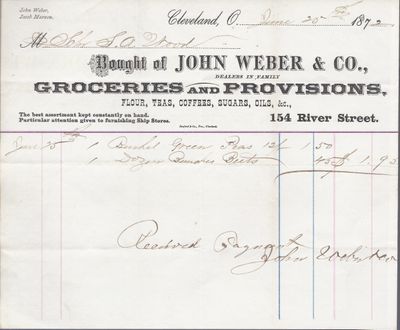 John Weber,
Jacob Marmon.
Cleveland, O. June 25th 1872
M Schr S. A. Wood
Bought of JOHN WEBER & CO.,
DEALERS IN FAMILY
GROCERIES AND PROVISIONS,
FLOUR, TEAS, COFFEES, SUGARS, OILS, &c.,
The best assortment kept constantly on hand.
Particular attention given to furnishing Ship Stores.
154 River Street.
June 25th 1 Bushel Green Peas 12/ 1 50
1 Dozen Bunches Beets 45 $ 1.95
Received Payment
John Weber & Co